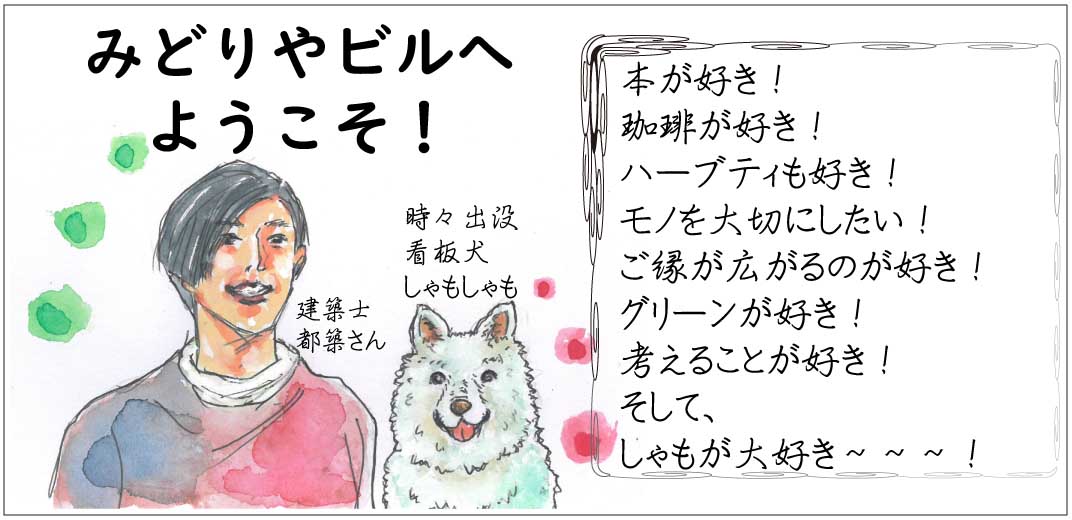 みどりやビルへ
ようこそ！
時々出没
看板犬
しゃもしゃも
建築士
都築さん
本が好き！
珈琲が好き！
ハーブティも好き！
モノを大切にしたい！
ご縁が広がるのが好き！
グリーンが好き！
考えることが好き！
そして、
しゃもが大好き～～～！